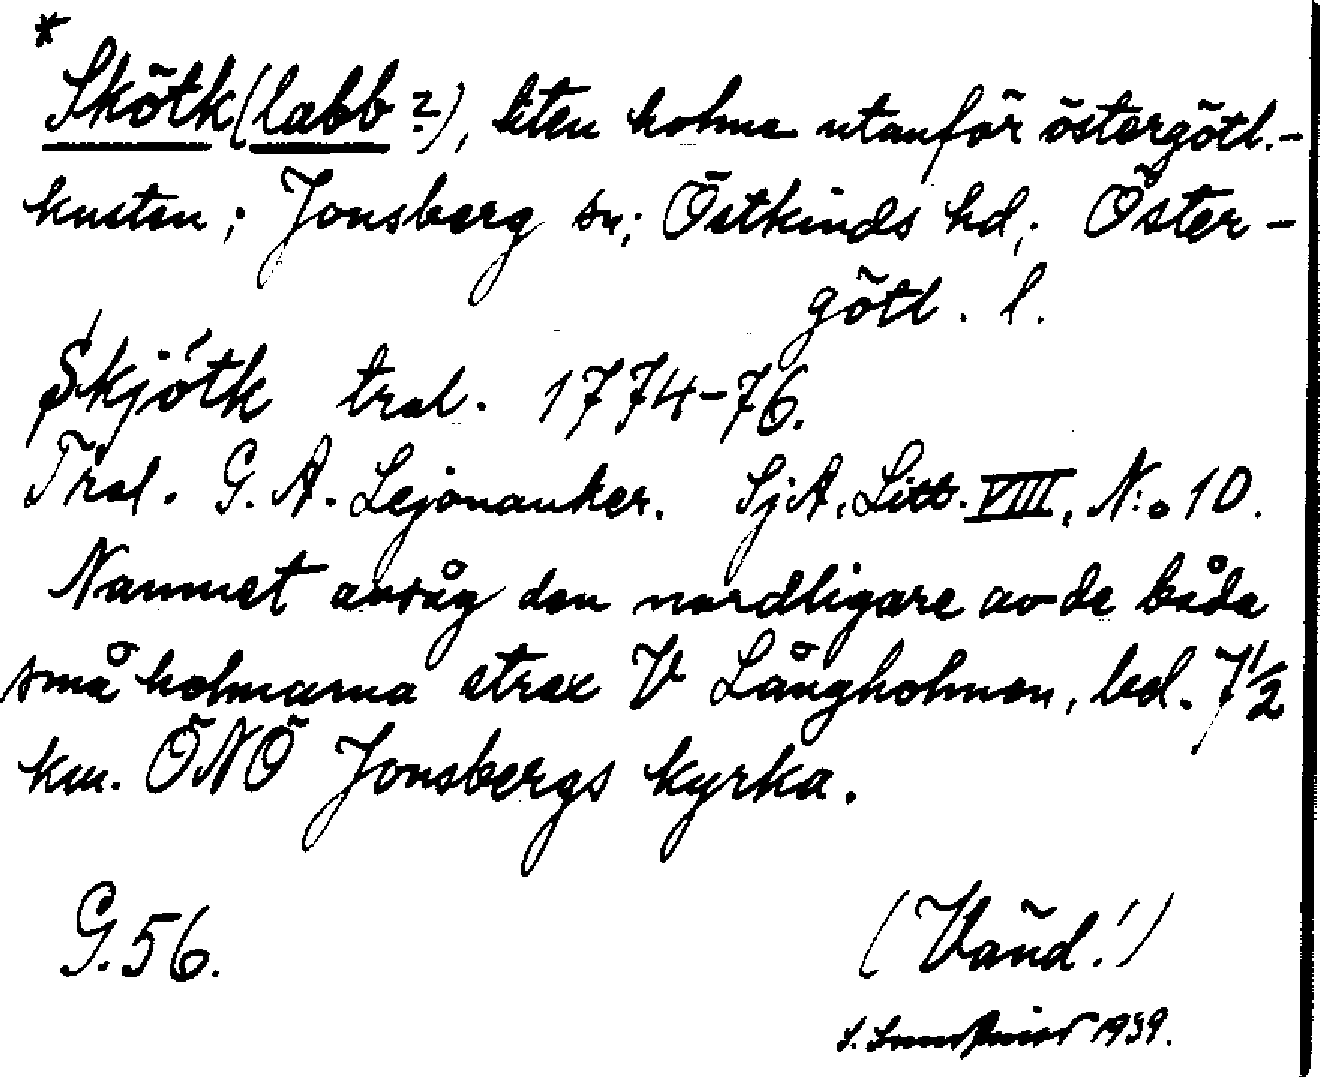 *
Skötk(labb?), liten holme utanför östergötl.-
kusten; Jonsberg sn; Östkinds hd; Öster-
götl. l.
Skjötk trol. 1774-76.
Trol. G. A. Lejonanker. SjA, Litt. VIII, N:o 10.
Namnet avsåg den nordligare av de båda
små holmarna strax V Långholmen, bel. 7 1/2
km. ÖNÖ Jonsbergs kyrka.
G. 56.
(Vänd!)
1939.